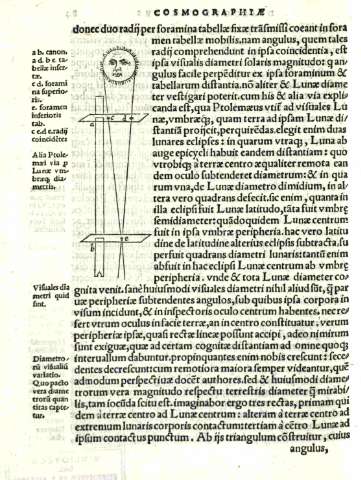 COSMOGRAPHIÆ
donec duo radij per foramina tabellæ fixæ trãsmissi coeant in fora
men tabellæ mobilis, nam angulus, quem tales
radij comprehendunt in ipsa coincidentia, est
ipsa visualis diametri solaris magnitudo: q an-
gulus facile perpẽditur ex ipsa foraminum &
tabellarum distantia. nõ aliter & Lunæ diame
ter vestigari poterit. cum his & alia via explic
canda est, qua Ptolemæus vtif ad visuales Lu
næ, vmbræq;, quam terra ad ipsam Lunæ di-
stantiã proijcit, perquirẽdas. elegit enim duas
lunares eclipses: in quarum vtraq;, Luna ab
auge epicycli habuit eandem distantiam: quo
vtrobiq; à terræ centro æqualiter remota ean
dem oculo subtenderet diametrum: & in qua
rum vna, de Lunæ diametro dimidium, in al-
tera vero quadrans defecit. sic enim, quanta in
illa eclipsi fuit Lunæ latitudo, tãta fuit vmbræ
semidiameter: quãdoquidem Lunæ centrum
fuit in ipsa vmbræ peripheria. hac vero latitu
dine de latitudine alterius eclipsis subtracta, su
persuit quadrans diametri lunaris: tantũ enim
abfuit in hac eclipsi Lunæ centrum ab vmbræ
peripheria. vnde & tota Lunæ diameter co-
gnita venit. sanè huiusmodi visuales diametri nihil aliud sũt, q̃ par
uæ peripheriæ subtendentes angulos, sub quibus ipsa corpora in
visum incidunt, & in inspectoris oculo centrum habentes. nec re-
fert vtrum oculus in facie terræ, an in centro constituatur, verum
peripheriæ ipsæ, quasi rectæ lineæ possunt accipi, adeo nimirum
sunt exiguæ, quæ ad certam cognitæ distantiam ad omne quoq;
interuallum dabuntur. propinquantes enim nobis crescunt: sece-
dentes decrescunt: cum remotiora maiora semper videantur, quẽ-
admodum perspectiuæ docẽt authores. sed & huiusmodi diame-
trorum vera magnitudo respectu terrestris diametri q̃ mirabi-
lis, tam iocũda scitu est. imaginabor ergo tres rectas, primam qui
dem à terræ centro ad Lunæ centrum: alteram à terræ centro ad
extremum lunaris corporis contactum: tertiam à cẽtro Lunæ ad
ipsum contactus punctum. Ab ijs triangulum cõstruitur, cuius
angulus,
a b. canon.
a d. b e. ta-
bellæ infer-
tæ.
c d. forami
na superio-
ris.
e. foramen
inferioris
tab.
c e. d e. radij
coincidẽtes
Alia Pto-
lemæi via p
Lunæ vm-
bræq; dia-
metris.
Visuales dia
metri quid
sint.
Diametro-
rũ visualiũ
variatio.
Quo pacto
vera diame
trorũ quan
titas captæ-
tur.
a
c
d
b
e